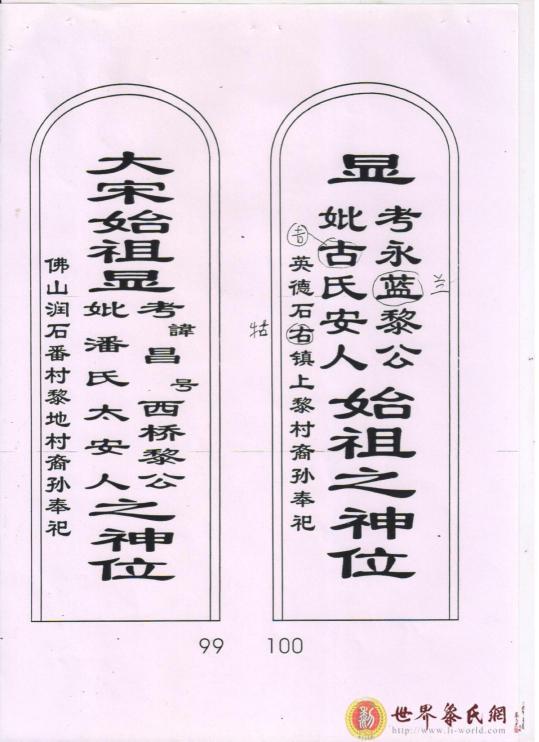 显
考永蓝黎公
妣古氏安人
始祖之神位
英德石右镇上黎村裔孙奉祀
吉
兰
牯
大宋始祖显
考諱昌号西桥黎公
妣潘氏太安人
之神位
佛山润石番村黎地村裔孙奉祀
99 100
世界黎氏網
http://www.li-world.com